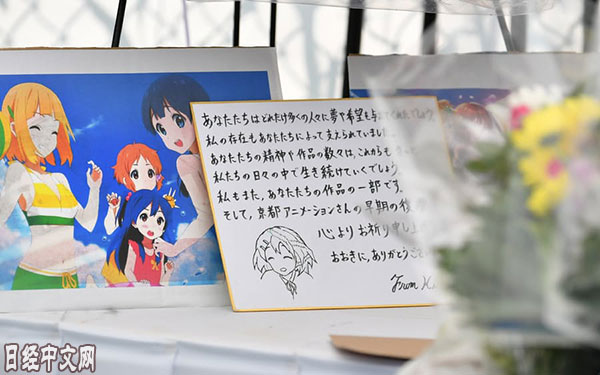 あなたたちはどれだけ多くの人々に夢や希望を与えてくれたでしょう
私の存在もあなたたちによって支えられていました
あなたたちの精神や作品の数々は、これからも
私たちの日々の中で生き続けていくでしょう
私もまた、あなたたちの作品の一部です。
そして、京都アニメーションさんの早期の復
心よりお祈り申し上
おおきに、ありがとうござ
From
日经中文网